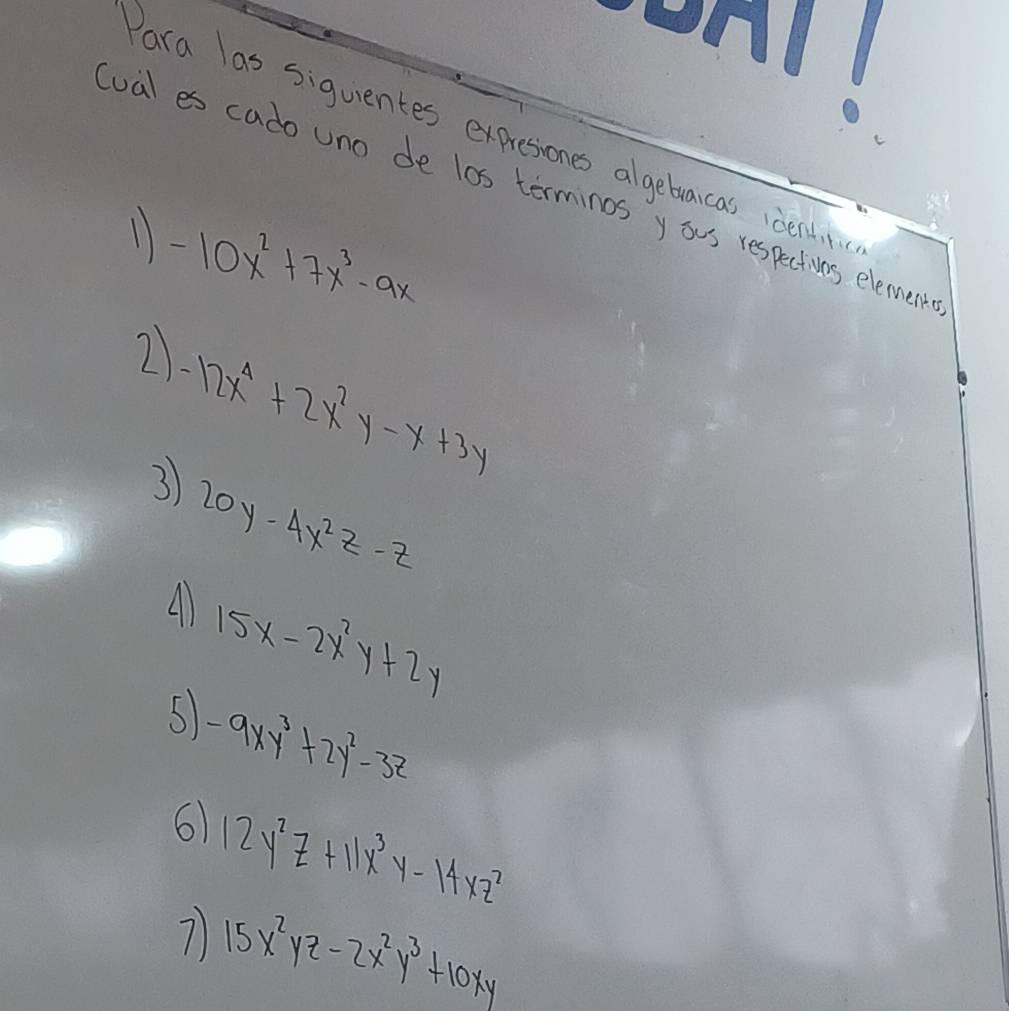 Para las siguientes expresiones algebraicas identifica
Cuál es cado uno de los términos y sus respectivos elementos
1) -10x² + 7x³ - 9x
2) -12x⁴ + 2x²y - x + 3y
3) 20y - 4x²z - z
4) 15x - 2x²y + 2y
5) -9xy³ + 2y² - 3z
6) 12y²z + 11x³y - 14xz²
7) 15x²yz - 2x²y³ + 10xy